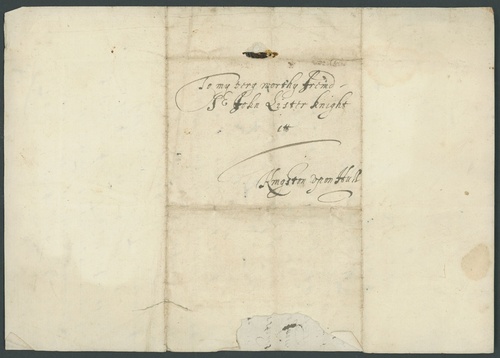 To my very worthy frend
Sr John Lister knight
att
Kingston upon Hull